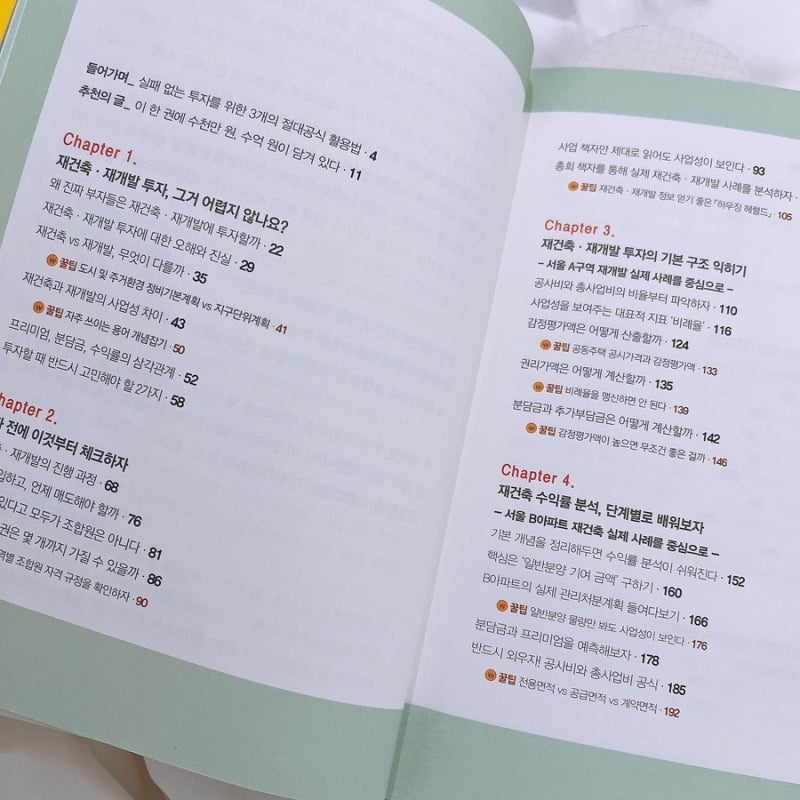 들어가며_ 실패 없는 투자를 위한 3개의 절대공식 활용법 · 4
추천의 글_ 이 한 권에 수천만 원, 수억 원이 담겨 있다 · 11
Chapter 1.
재건축 · 재개발 투자, 그거 어렵지 않나요?
왜 진짜 부자들은 재건축 · 재개발에 투자할까 · 22
재건축 · 재개발 투자에 대한 오해와 진실 · 29
재건축 vs 재개발, 무엇이 다를까 · 35
꿀팁 도시 및 주거환경 정비기본계획 vs 지구단위계획 · 41
재건축과 재개발의 사업성 차이 · 43
꿀팁 자주 쓰이는 용어 개념잡기 · 50
프리미엄, 분담금, 수익률의 삼각관계 · 52
투자할 때 반드시 고민해야 할 2가지 · 58
hapter 2.
전에 이것부터 체크하자
· 재개발의 진행 과정 · 68
입하고, 언제 매도해야 할까 · 76
있다고 모두가 조합원은 아니다 · 81
권은 몇 개까지 가질 수 있을까 · 86
역별 조합원 자격 규정을 확인하자 · 90
사업 책자만 제대로 읽어도 사업성이 보인다 · 93
총회 책자를 통해 실제 재건축 · 재개발 사례를 분석하자 ·
꿀팁 재건축 · 재개발 정보 얻기 좋은 「하우징 헤럴드」 · 105
Chapter 3.
재건축 · 재개발 투자의 기본 구조 익히기
– 서울 A구역 재개발 실제 사례를 중심으로 –
공사비와 총사업비의 비율부터 파악하자 · 110
사업성을 보여주는 대표적 지표 '비례율' · 116
감정평가액은 어떻게 산출할까 · 124
꿀팁 공동주택 공시가격과 감정평가액 · 133
권리가액은 어떻게 계산할까 · 135
꿀팁 비례율을 맹신하면 안 된다 · 139
분담금과 추가부담금은 어떻게 계산할까 · 142
꿀팁 감정평가액이 높으면 무조건 좋은 걸까 · 146
Chapter 4.
재건축 수익률 분석, 단계별로 배워보자
– 서울 B아파트 재건축 실제 사례를 중심으로 –
기본 개념을 정리해두면 수익률 분석이 쉬워진다 · 152
핵심은 '일반분양 기여 금액' 구하기 · 160
B아파트의 실제 관리처분계획 들여다보기 · 166
꿀팁 일반분양 물량만 봐도 사업성이 보인다 · 176
분담금과 프리미엄을 예측해보자 · 178
반드시 외우자! 공사비와 총사업비 공식 · 185
꿀팁 전용면적 vs 공급면적 vs 계약면적 · 192